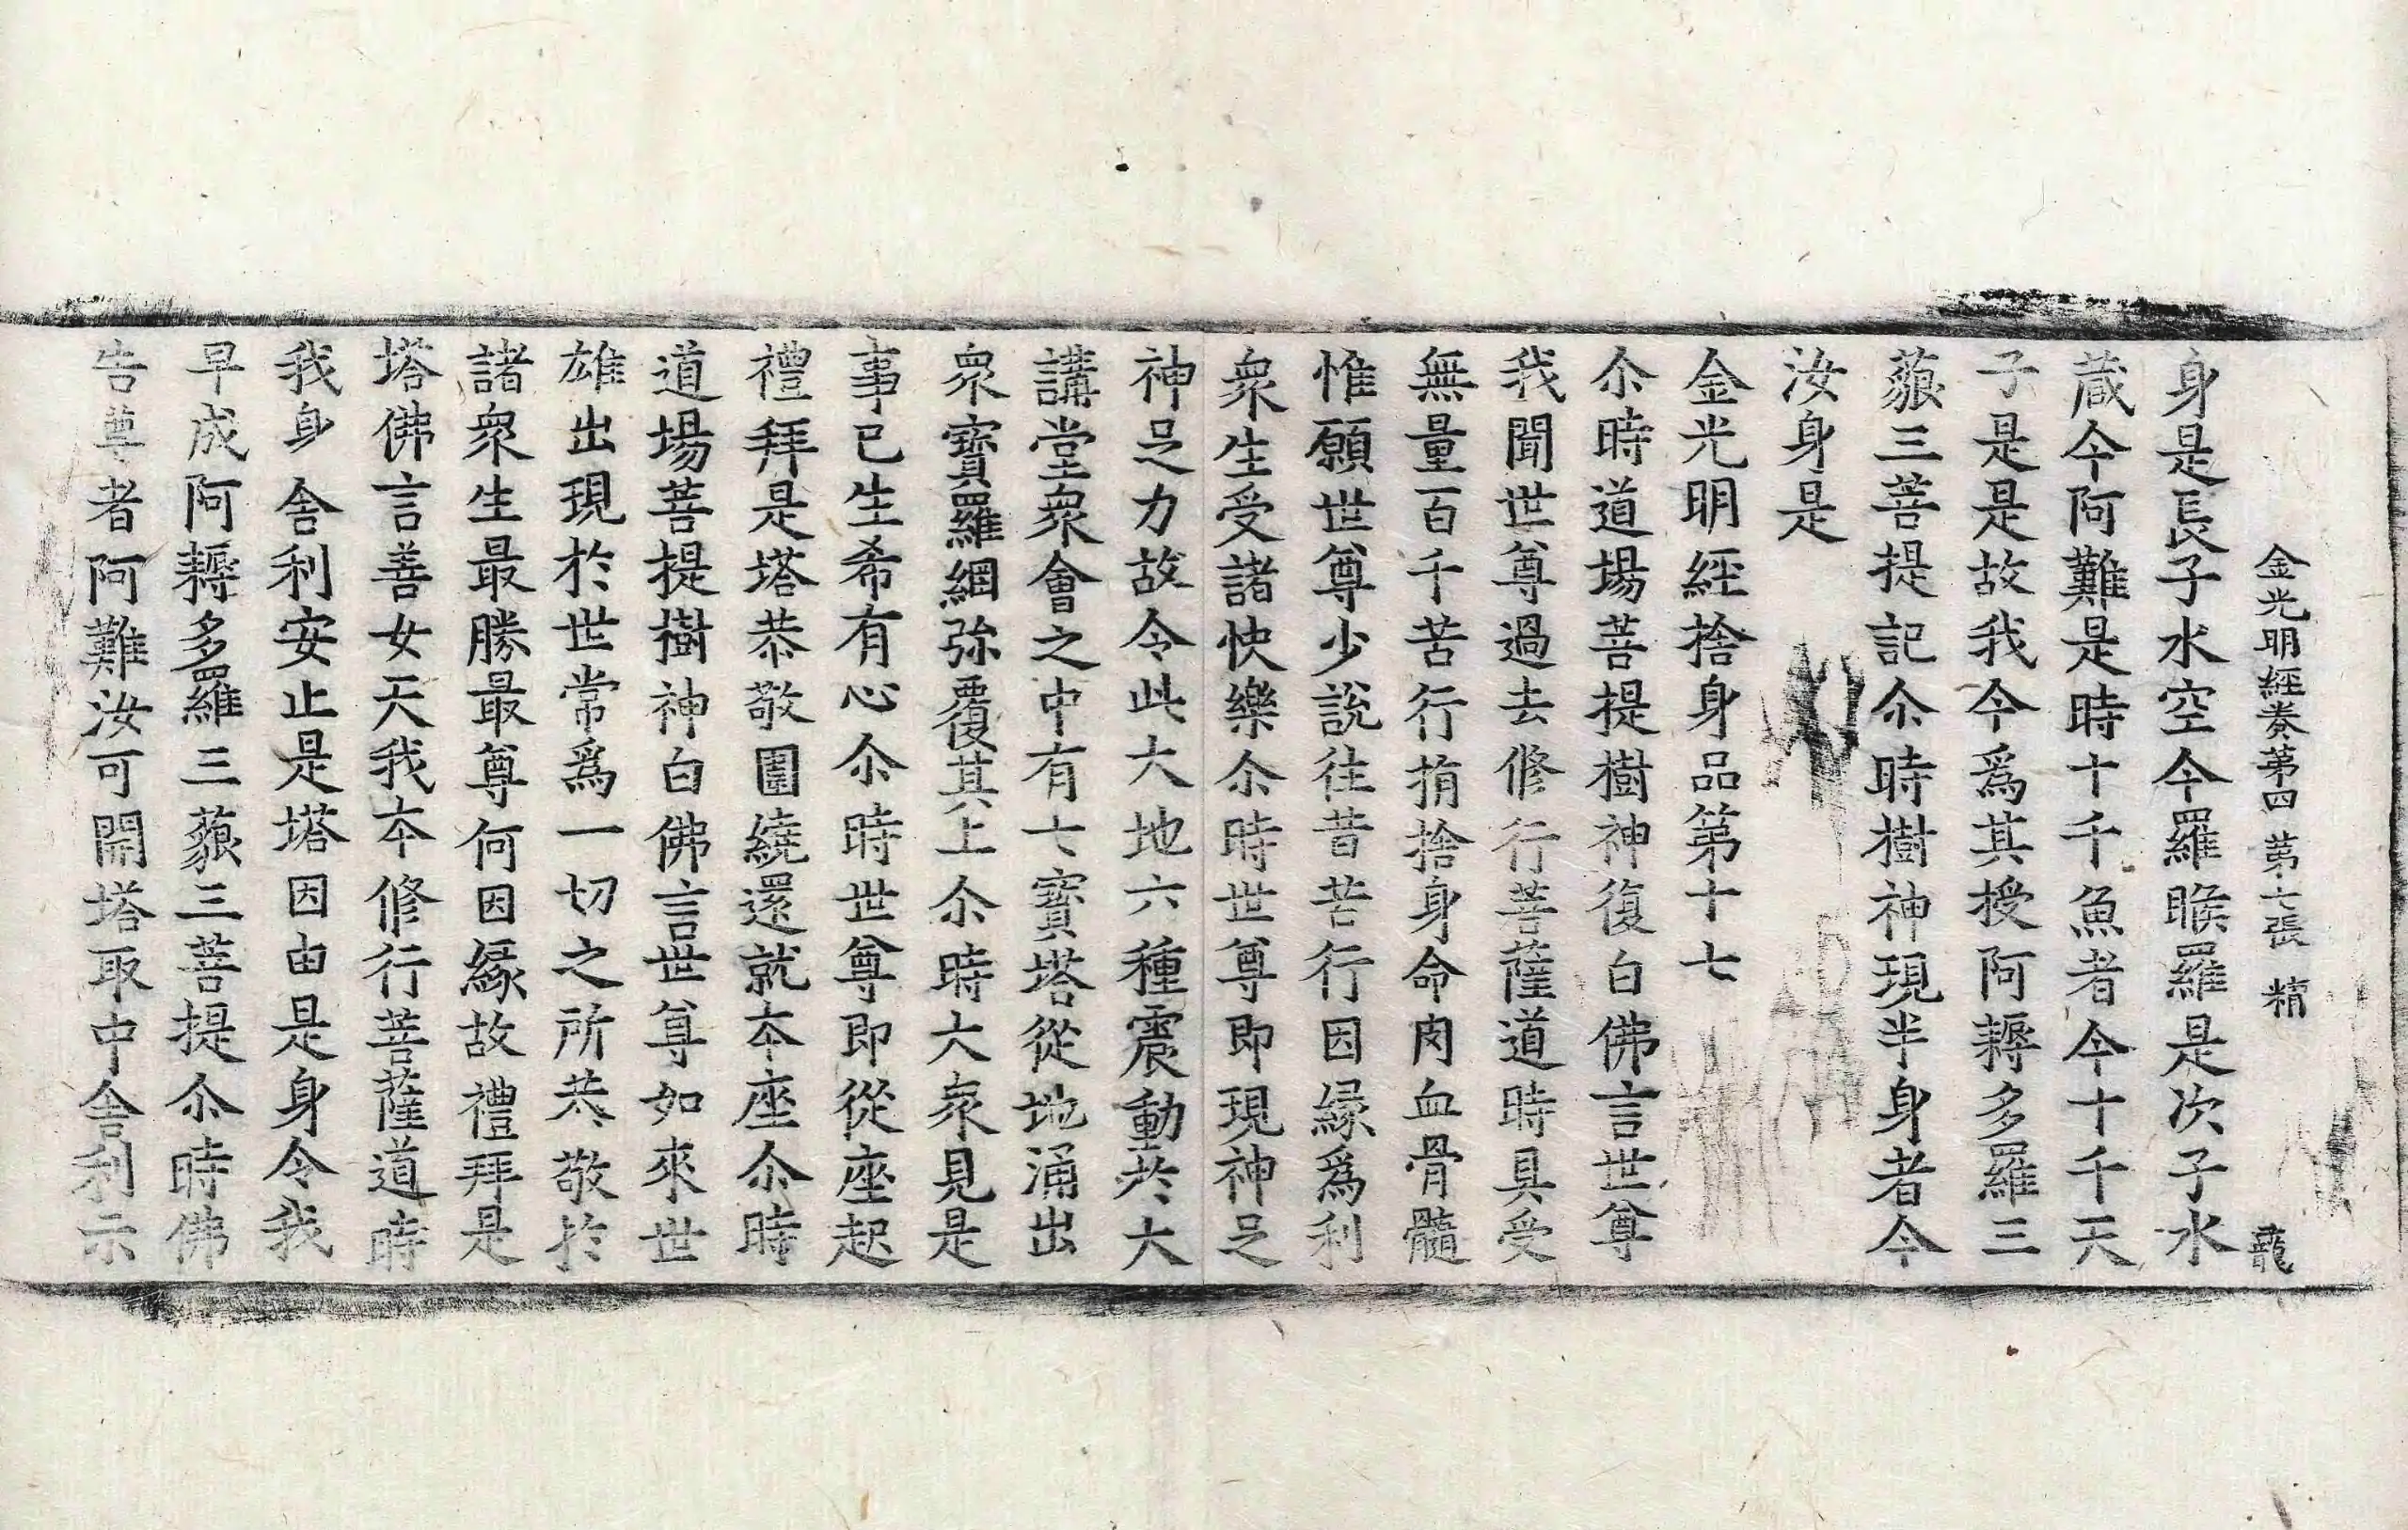 金光明經卷第四 第七張 精
身是長子水空今羅睺羅是次子水
蔵今阿難是時十千魚者今十千天
子是是故我今爲其授阿耨多羅三
藐三菩提記尒時樹神現半身者今
汝身是
金光明經捨身品第十七
尒時道場菩提樹神復白佛言世尊
我聞世尊過去修行菩薩道時具受
無量百千苦行捐捨身命肉血骨髓
惟願世尊少說往昔苦行因緣爲利
衆生受諸快樂尒時世尊即現神足
神足力故令此大地六種震動於大
講堂衆會之中有七寶塔從地涌出
衆寶羅網弥覆其上尒時大衆見是
事已生希有心尒時世尊即從座起
禮拜是塔恭敬圍繞還就本座尒時
道場菩提樹神白佛言世尊如來世
雄出現於世常爲一切之所恭敬於
諸衆生最勝最尊何因緣故禮拜是
塔佛言善女天我本修行菩薩道時
我身舍利安止是塔因由是身令我
早成阿耨多羅三藐三菩提尒時佛
告尊者阿難汝可開塔取中舍利示